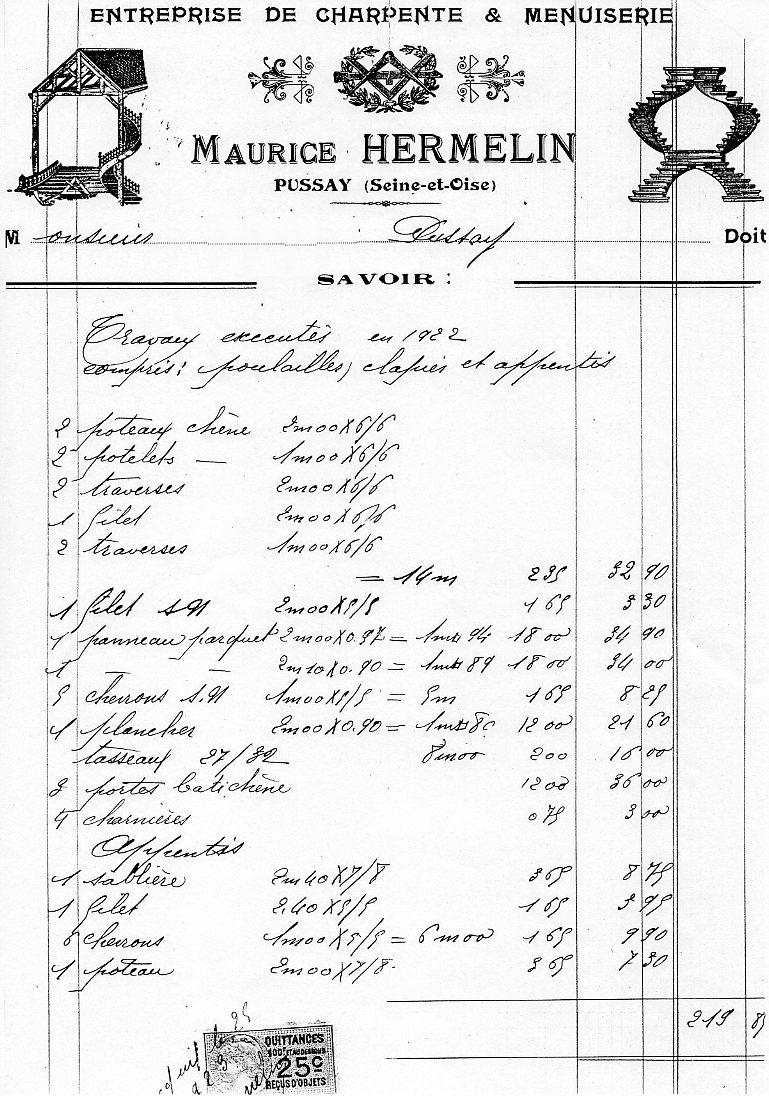 ENTREPRISE DE CHARPENTE & MENUISERIE
MAURICE HERMELIN
PUSSAY (Seine-et-Oise)
Monsieur Pussay Doit
SAVOIR :
Travaux executés en 1922
compris: poulailles, clapiés et appentis
2 poteaux chêne 2m00X6/6
2 potelets — 1m00X6/6
2 traverses 2m00X6/6
1 filet 2m00X6/6
2 traverses 1m00X6/6
= 14m 2 35 32 90
1 filet S.N 2m00X5/5 1 65 3 30
1 panneau parquet 2m00X0.97 = 1m 94 18 00 34 90
1 — — 2m10X0.90 = 1m 89 18 00 34 00
5 chevrons S.N 1m00X5/5 = 5m 1 65 8 25
1 plancher 2m00X0.90 = 1m 80 12 00 21 60
tasseaux 27/32 8m00 2 00 16 00
3 portes batichêne 12 00 36 00
4 charnières 0 75 3 00
Appentis
1 sablière 2m40X7/8 3 65 8 75
1 filet 2.40X5/5 1 65 3 95
6 chevrons 1m00X5/5 = 6m00 1 65 9 90
1 poteau 2m00X7/8. 3 65 7 30
219 85
QUITTANCES
100F ET AU DESSOUS
25c
REÇUS D'OBJETS